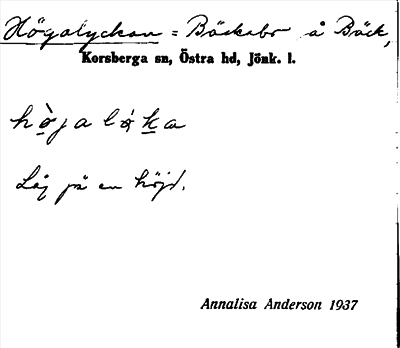 Högalyckan = Bäckabo å Bäck,
Korsberga sn, Östra hd, Jönk. l.
hòjalóka
Låg på en höjd.
Annalisa Anderson 1937